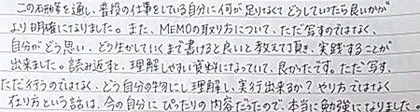 この研修を通し、普段の仕事をしている自分に何が足りなくてどうしていたら良いかが
より明確になりました。また、MEMOの取り方について、ただ写すのではなく、
自分がどう思い、どう生かしていくまで書けると良いと教えて頂き、実践することが
出来ました。読み返すと、理解しやすい資料になっていて、良かったです。ただ写す、
ただ行うのではなく、どう自分の物にし理解し、実行出来るか？やり方ではなく
在り方という話は、今の自分にぴったりの内容だったので、本当に勉強になりました